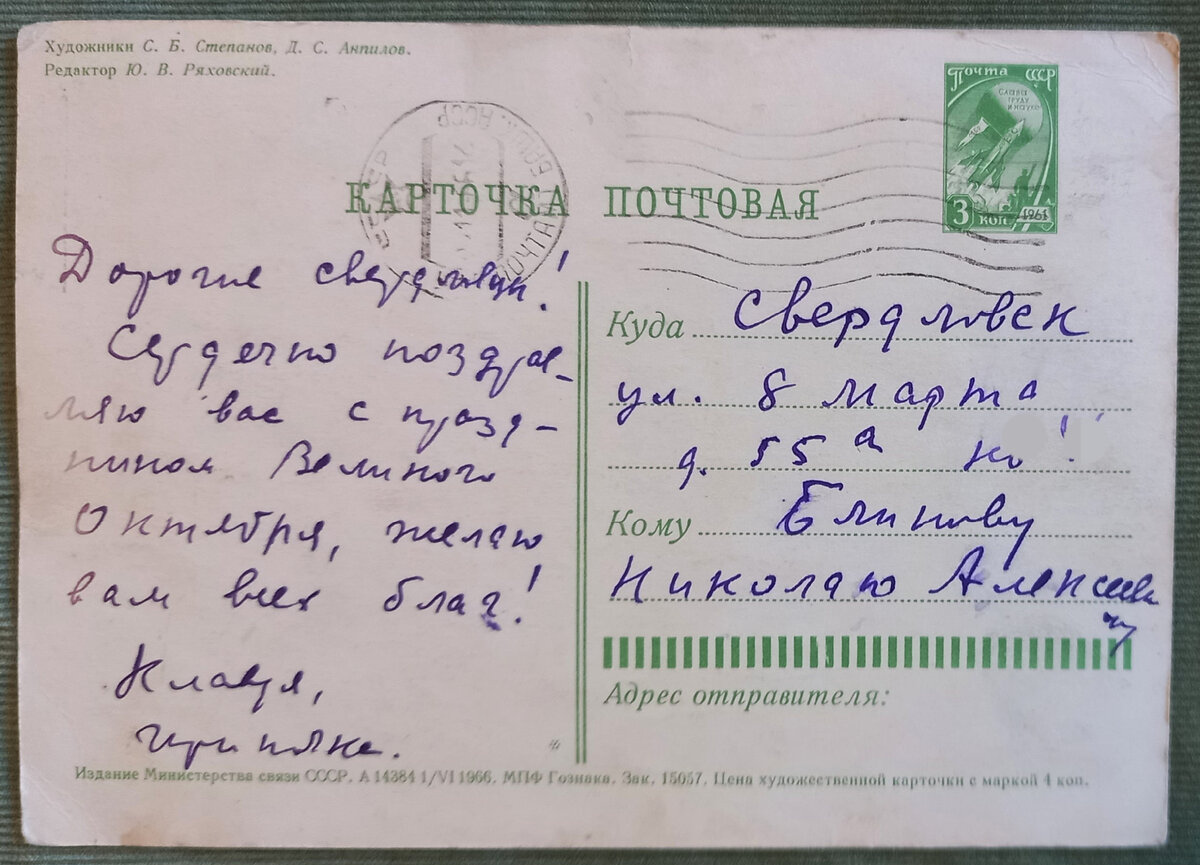 Художники С. Б. Степанов, Д. С. Анпилов.
Редактор Ю. В. Ряховский.
Почта СССР
СЛАВА
ТРУДУ
И НАУКЕ
3 коп. 1961
КАРТОЧКА ПОЧТОВАЯ
Дорогие
Сердечно поздрав-
ляю вас с празд-
ником Великого
Октября, желаю
вам всех благ!
Клавдя,
Куда Свердловск
ул. 8 марта
д. 55а
Кому Блинову
Николаю Алексееви
чу
Адрес отправителя:
Издание Министерства связи СССР. А 14384 1/VI 1966. МПФ Гознака. Зак. 15057. Цена художественной карточки с маркой 4 коп.